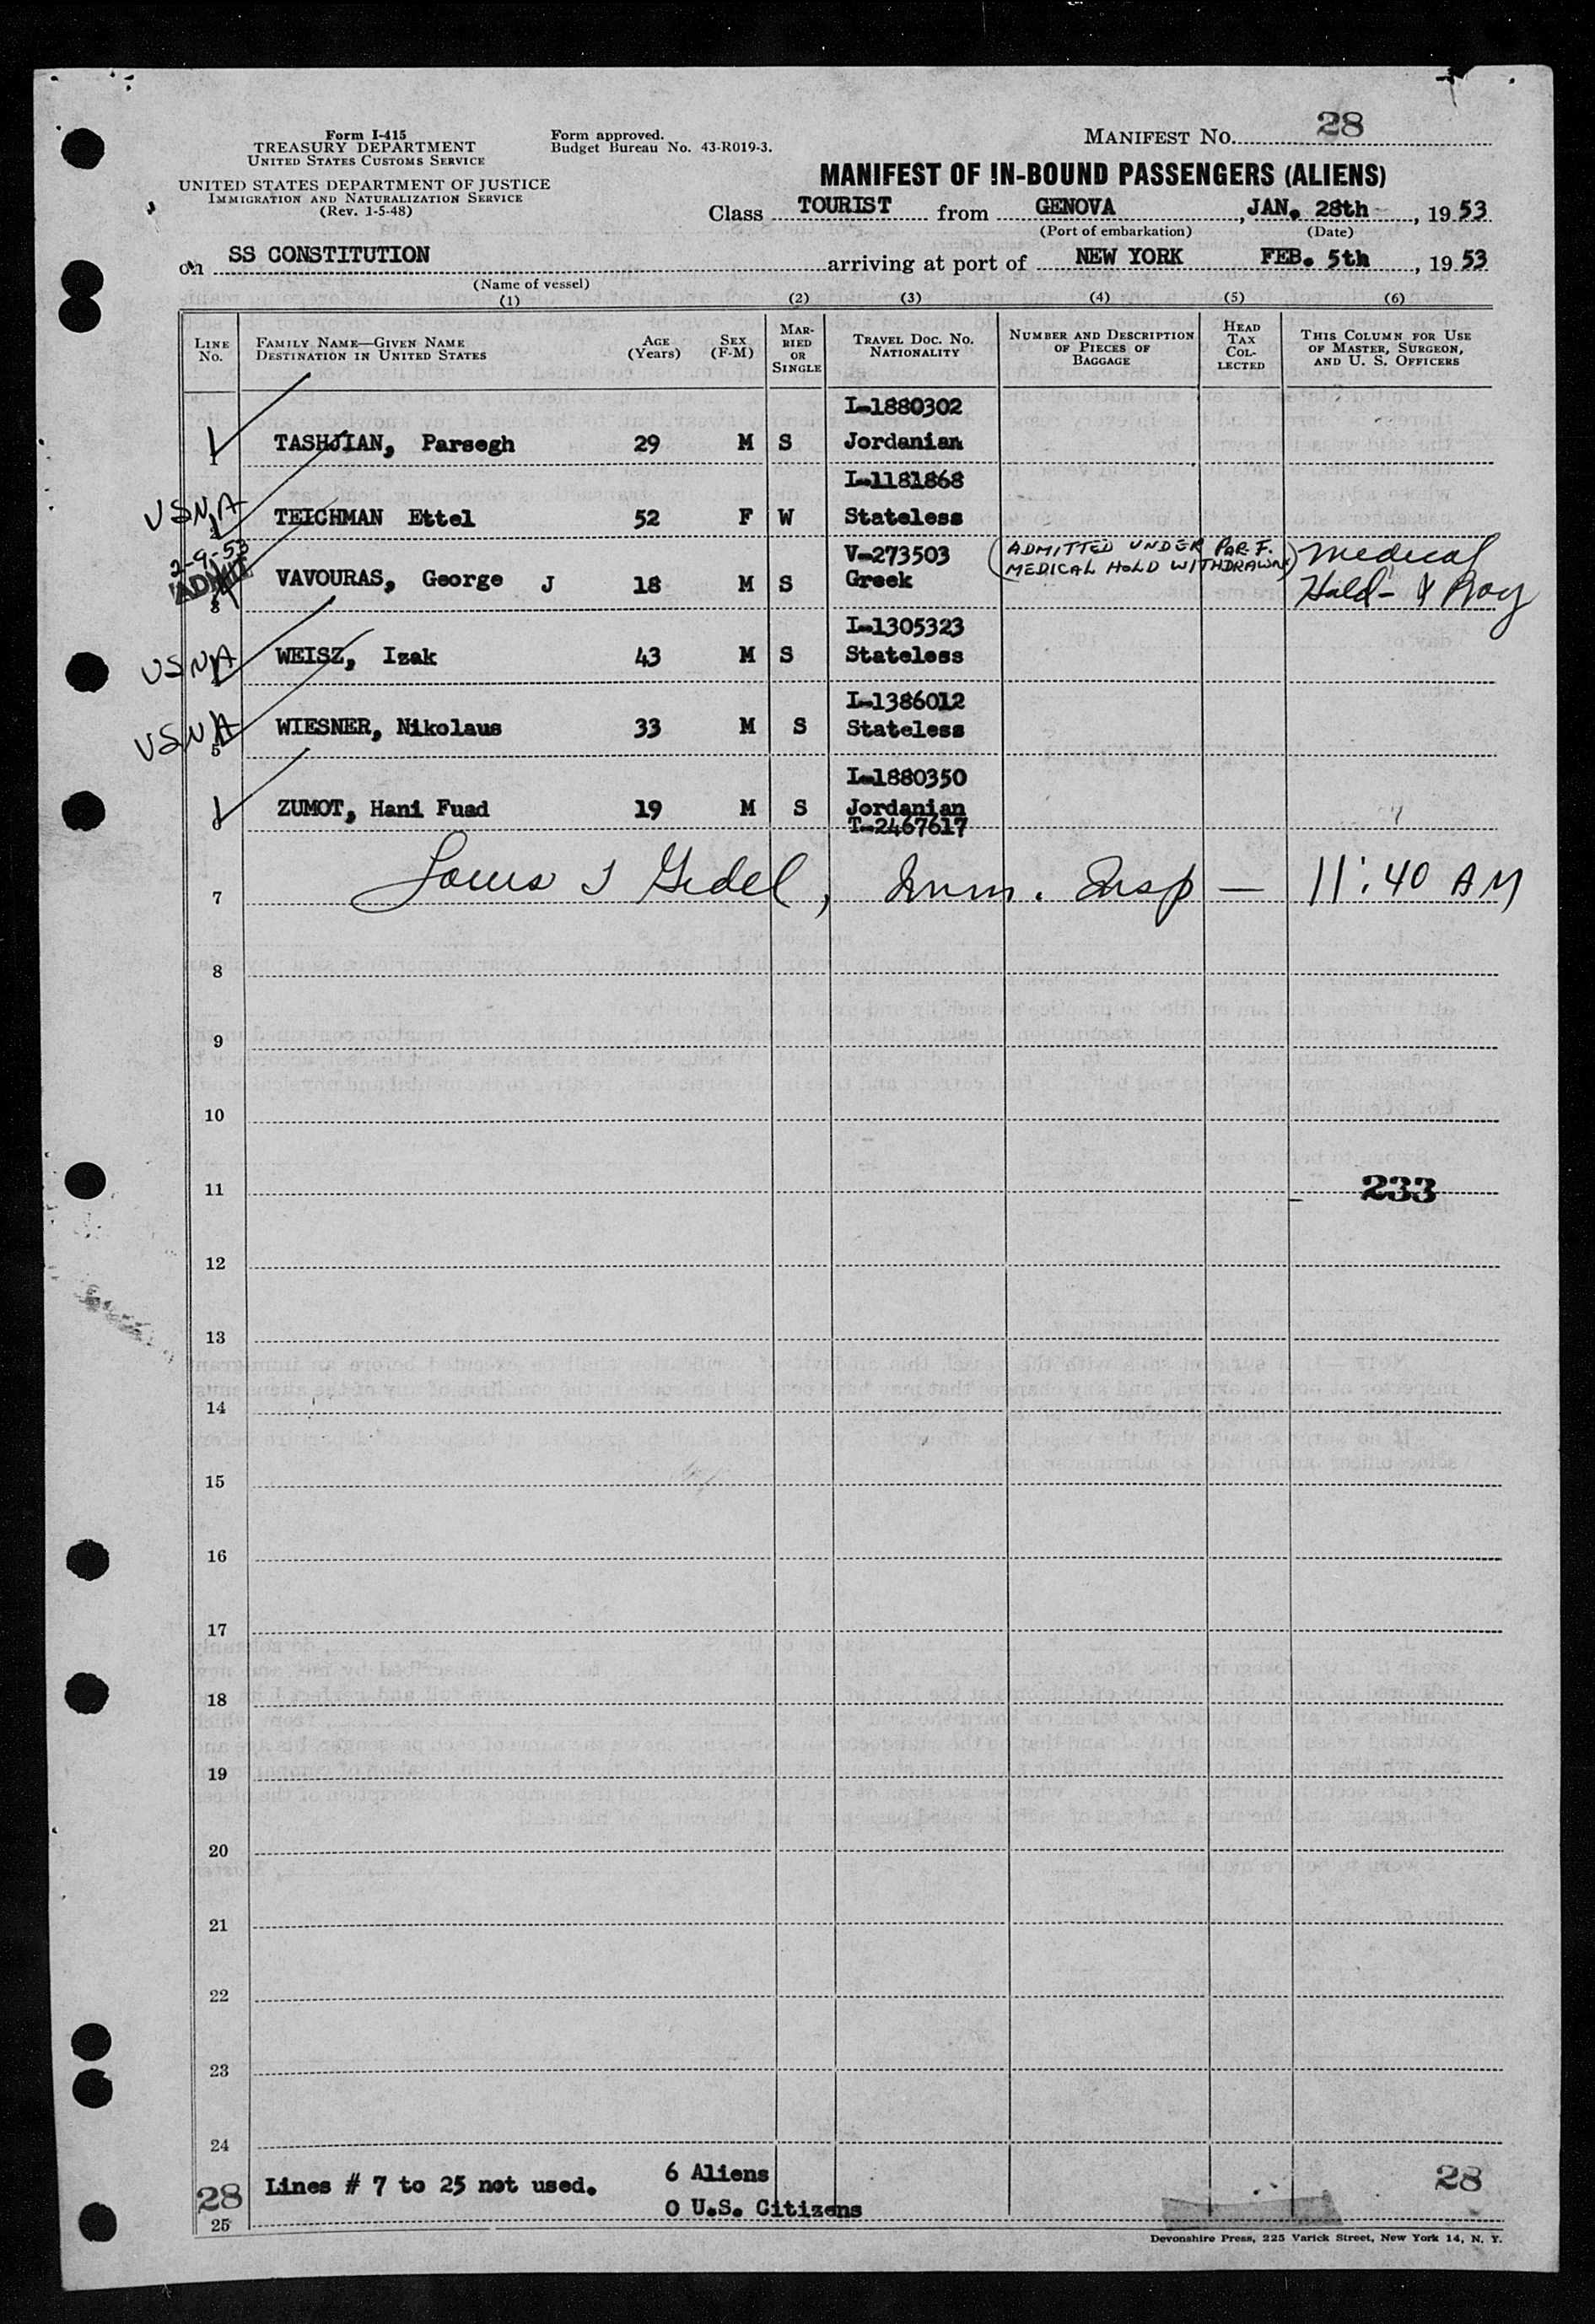 Form I-415
TREASURY DEPARTMENT
UNITED STATES CUSTOMS SERVICE
UNITED STATES DEPARTMENT OF JUSTICE
IMMIGRATION AND NATURALIZATION SERVICE
(Rev. 1-5-48)
Form approved.
Budget Bureau No. 43-R019-3.
MANIFEST No. 28
MANIFEST OF IN-BOUND PASSENGERS (ALIENS)
Class TOURIST from GENOVA, JAN. 28th, 1953
(Port of embarkation) (Date)
on SS CONSTITUTION arriving at port of NEW YORK FEB. 5th, 1953
(Name of vessel)
(1) (2) (3) (4) (5) (6)
LINE No.
FAMILY NAME—GIVEN NAME
DESTINATION IN UNITED STATES
AGE (Years)
SEX (F-M)
MARRIED OR SINGLE
TRAVEL DOC. No. NATIONALITY
NUMBER AND DESCRIPTION OF PIECES OF BAGGAGE
HEAD TAX COLLECTED
THIS COLUMN FOR USE OF MASTER, SURGEON, AND U. S. OFFICERS
I-1880302
1 TASHJIAN, Parsegh 29 M S Jordanian
I-1181868
USNA 2 TEICHMAN Ettel 52 F W Stateless
2-9-53 V-273503 (ADMITTED UNDER PAR. F. Medical
ADMIT 3 VAVOURAS, George J 18 M S Greek MEDICAL HOLD WITHDRAWN) Hold- X Ray
I-1305323
USNA WEISZ, Izak 43 M S Stateless
I-1386012
USNA 5 WIESNER, Nikolaus 33 M S Stateless
I-1880350
ZUMOT, Hani Fuad 19 M S Jordanian
T-2467617
7 Louis I Gedel, Imm. Insp — 11:40 AM
8
9
10
11 233
12
13
14
15
16
17
18
19
20
21
22
23
24
28 Lines # 7 to 25 not used. 6 Aliens 28
0 U.S. Citizens
25
Devonshire Press, 225 Varick Street, New York 14, N. Y.